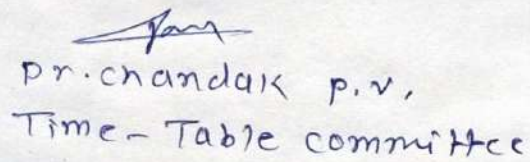 Dr. Chandak P.V.
Time-Table committee